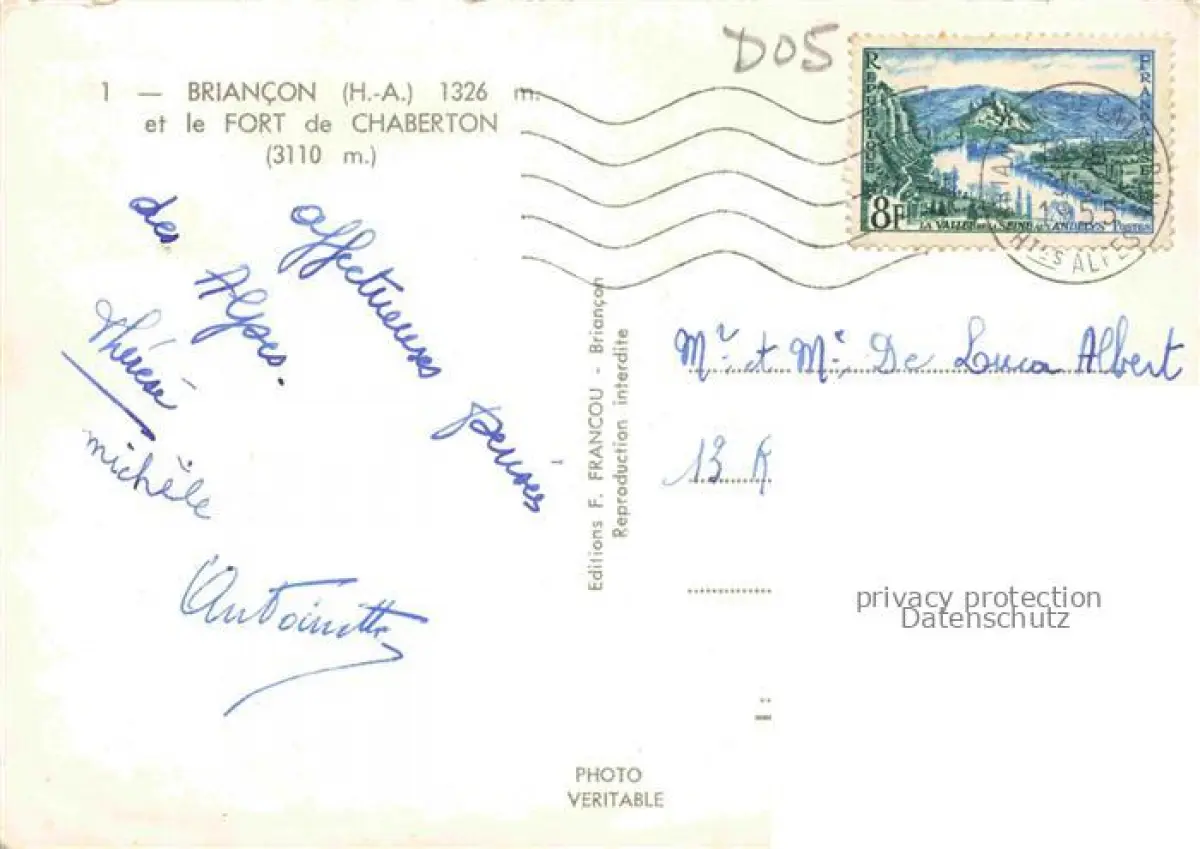 D05
RÉPUBLIQUE FRANÇAISE
8F
LA VALLÉE DE LA SEINE AUX ANDELYS POSTES
1955
HTES ALPES
1 — BRIANÇON (H.-A.) 1326 m.
et le FORT de CHABERTON
(3110 m.)
affectueuses pensées
des Alpes.
Thérèse
michèle
Antoinette
Editions F. FRANCOU - Briançon
Reproduction interdite
Mr et Me De Luca Albert
13 R
privacy protection
Datenschutz
PHOTO
VERITABLE